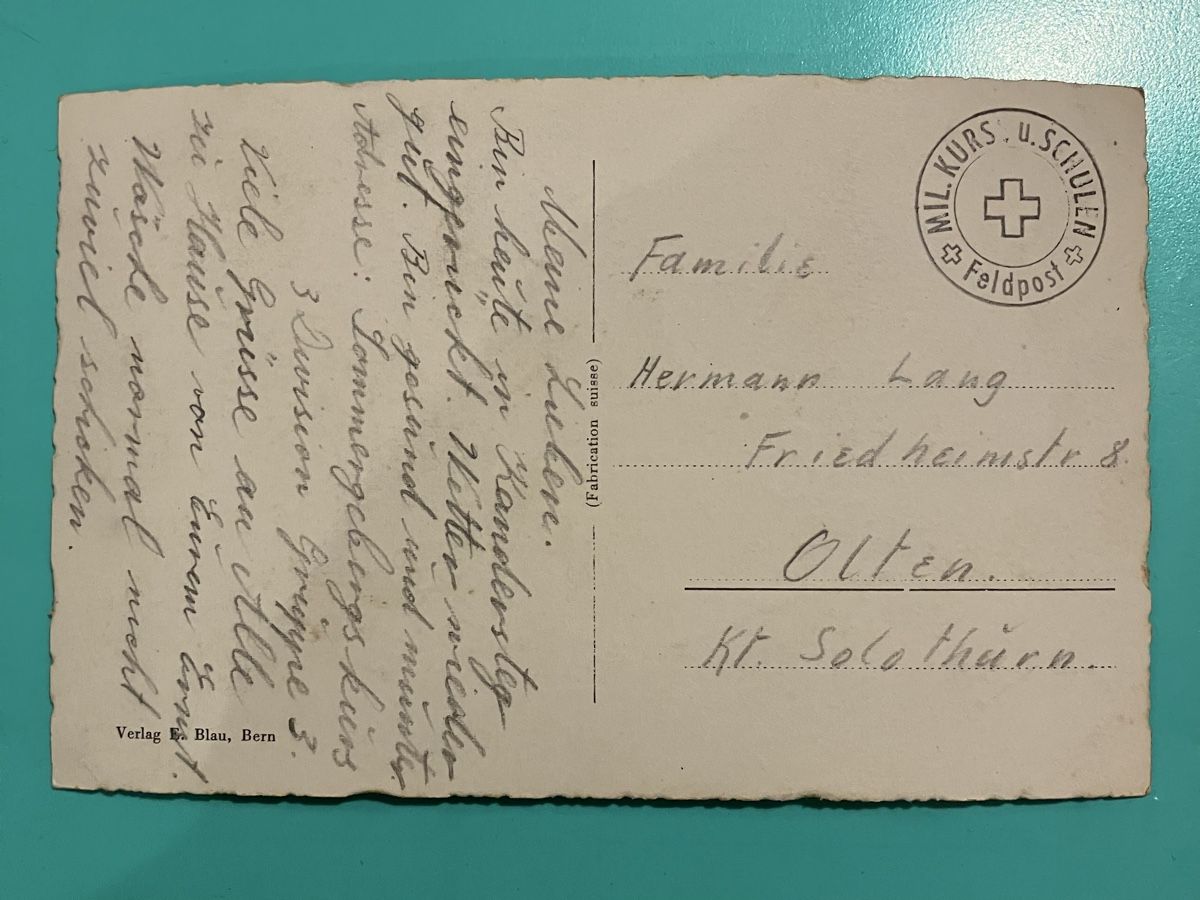 Meine Lieben.
Bin heute in Kandersteg
eingerückt. Wetter wieder
gut. Bin gesund und munter
Adresse: Sommergebirgskurs
3 Division Gruppe 3.
Viele Grüsse an Alle
zu Hause von Eurem Ernst.
Wäsche normal nicht
zuviel schicken.
Verlag E. Blau, Bern
(Fabrication suisse)
MIL. KURS. u. SCHULEN
Feldpost
Familie
Hermann Lang
Friedheimstr 8.
Olten.
Kt. Solothurn.